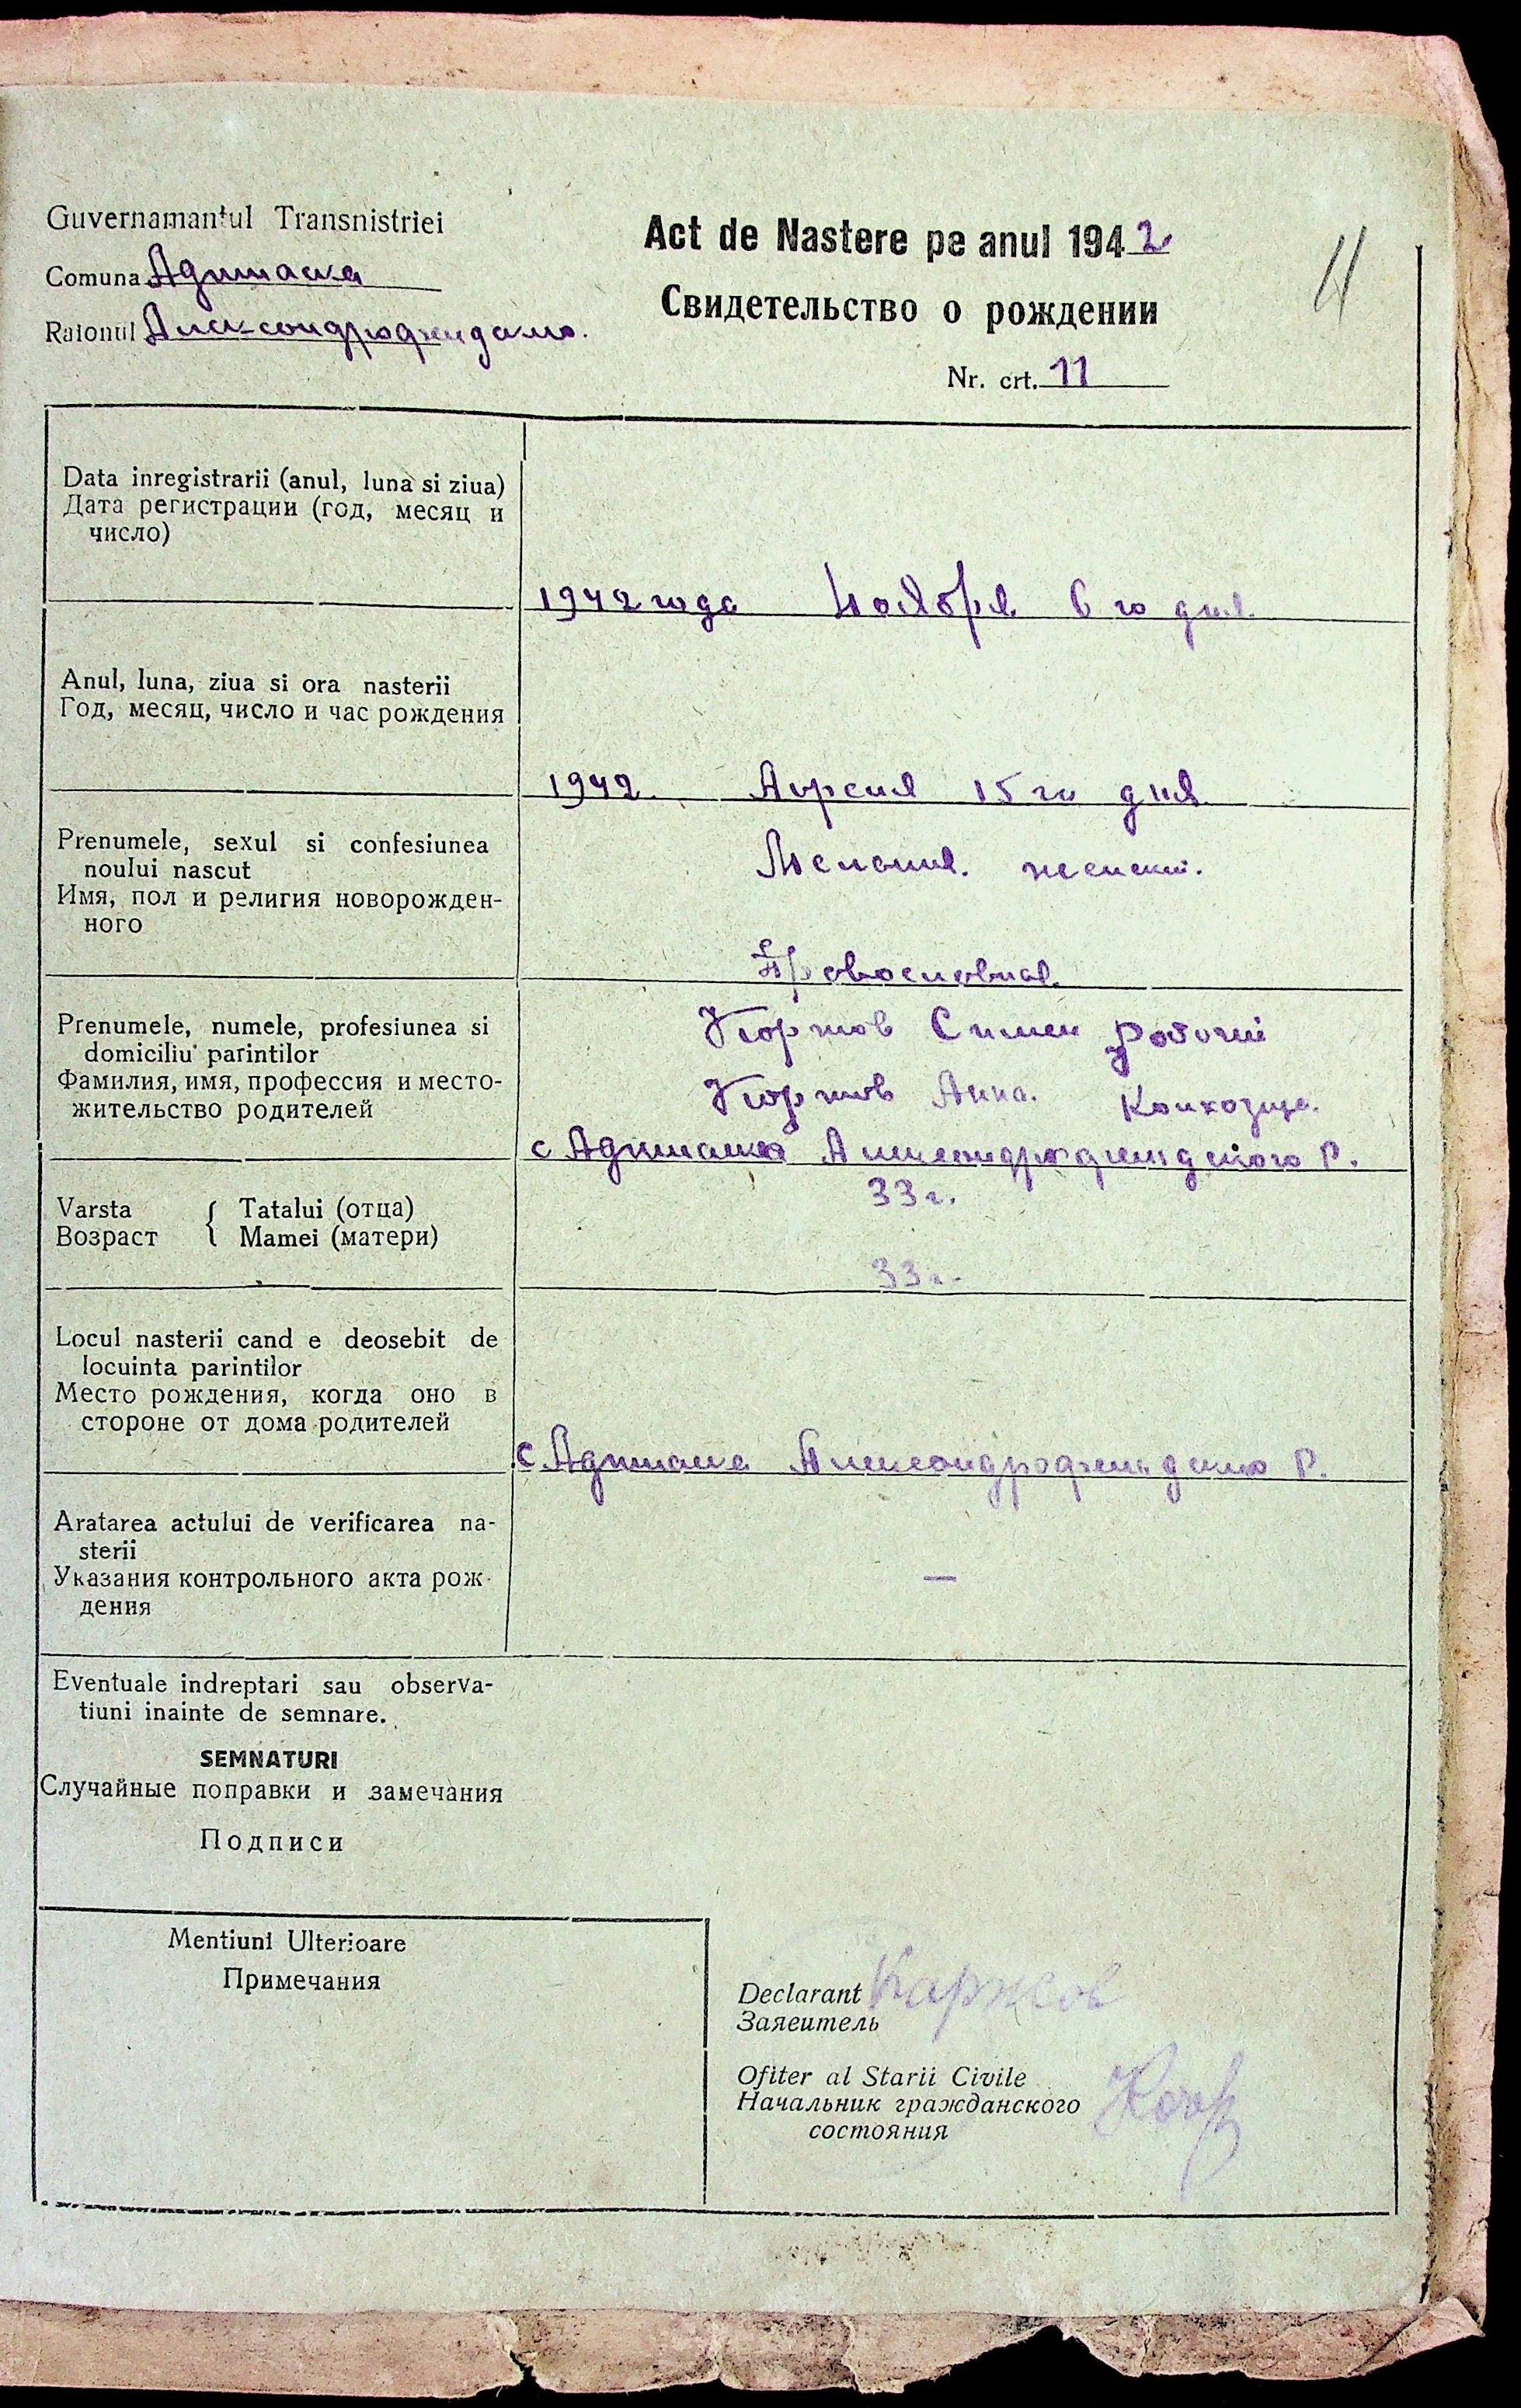 Guvernamantul Transnistriei
Comuna
Raionul
Act de Nastere pe anul 1942
Свидетельство о рождении
Nr. crt. 11
Data inregistrarii (anul, luna si ziua)
Дата регистрации (год, месяц и
число)
1942 года Ноября 6 го дня
Anul, luna, ziua si ora nasterii
Год, месяц, число и час рождения
1942 Апреля 15 го дня
Prenumele, sexul si confesiunea
noului nascut
Имя, пол и религия новорожден-
ного
Мелания. женский.
Православная
Prenumele, numele, profesiunea si
domiciliu parintilor
Фамилия, имя, профессия и место-
жительство родителей
Симен рабочий
Анна.
с
Р.
Varsta Tatalui (отца)
Возраст Mamei (матери)
33 г.
33 г.
Locul nasterii cand e deosebit de
locuinta parintilor
Место рождения, когда оно в
стороне от дома родителей
с
Р.
Aratarea actului de verificarea na-
sterii
Указания контрольного акта рож-
дения
—
Eventuale indreptari sau observa-
tiuni inainte de semnare.
SEMNATURI
Случайные поправки и замечания
Подписи
Mentiuni Ulterioare
Примечания
Declarant
Заявитель
Ofiter al Starii Civile
Начальник гражданского
состояния